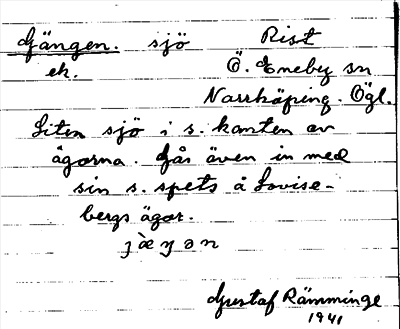 Gängen. sjö Rist
ek. Ö. Eneby sn
Norrköping. Ögl.
Liten sjö i s. kanten av
ägorna. Går även in med
sin s. spets å Lovise-
bergs ägor.
Gustaf Rämminge
1941